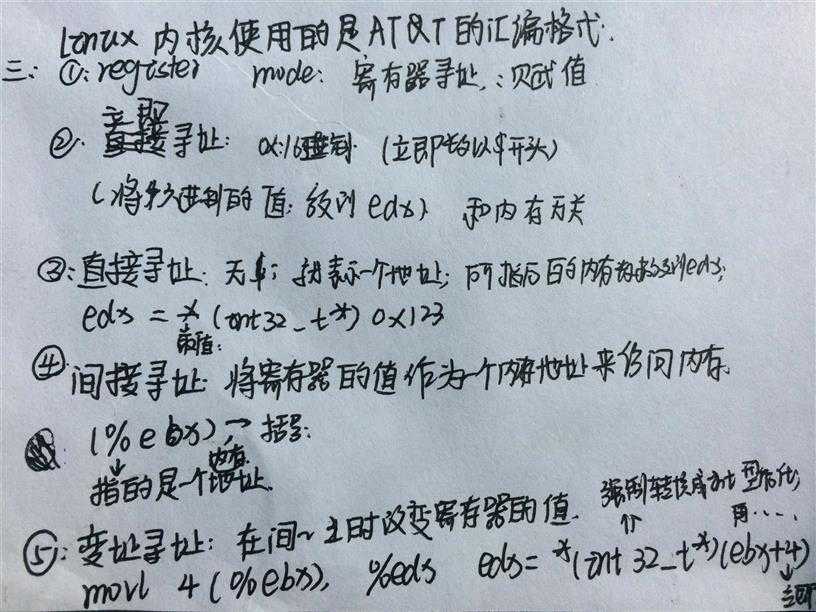 Linux 内核使用的是AT&T的汇编格式.
三: ①: register mode: 寄存器寻址,: 赋值
立即
②. 直接寻址: 0x:16进制 (立即数以$开头)
(将 进制的值: 给到 edx) 和内存无关
③: 直接寻址: 无$; 就表示一个地址; 所指向的内存 edx;
edx = *(int32_t*) 0x123
取值:
④ 间接寻址: 将寄存器的值作为一个内存地址来访问内存.
(%ebx) → 括号:
指的是一个内存地址.
强制转换成 型后;
再....
⑤: 变址寻址: 在间~ 时改变寄存器的值.
movl 4(%ebx), %edx edx= *(int 32_t*)(ebx+4)